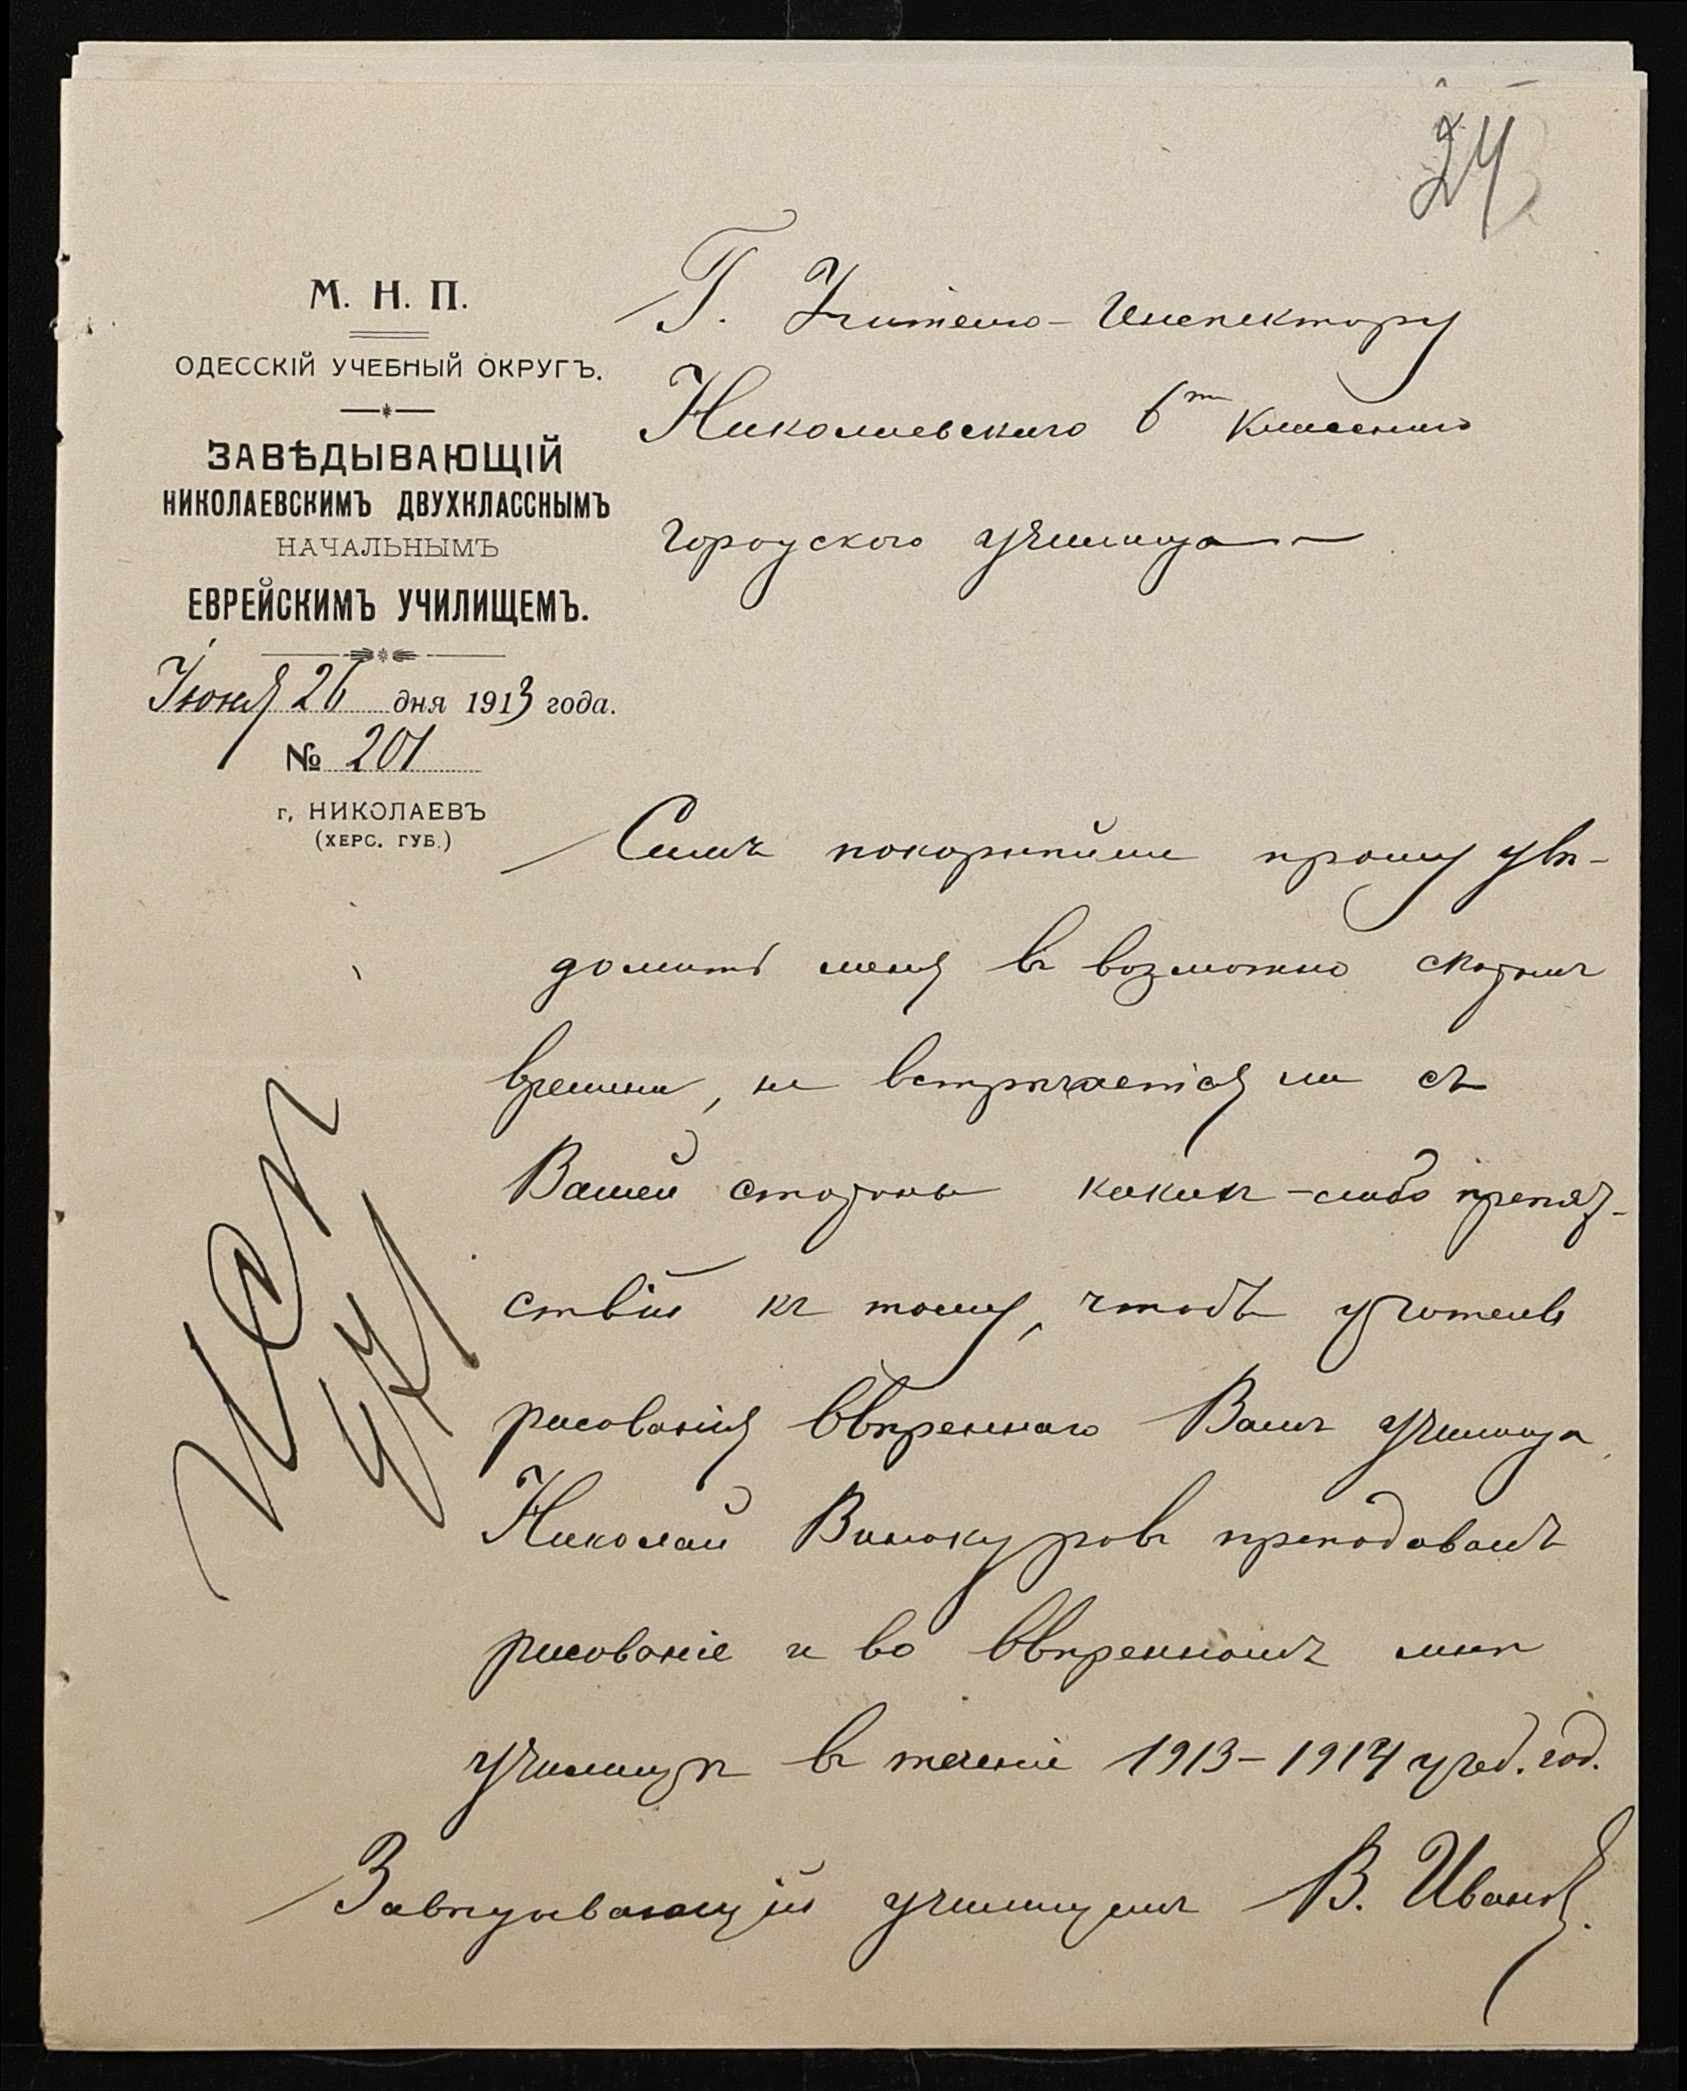 24
М. Н. П.
ОДЕССКІЙ УЧЕБНЫЙ ОКРУГЪ.
ЗАВѢДЫВАЮЩІЙ
НИКОЛАЕВСКИМЪ ДВУХКЛАССНЫМЪ
НАЧАЛЬНЫМЪ
ЕВРЕЙСКИМЪ УЧИЛИЩЕМЪ.
Іюня 26 дня 1913 года.
№ 201
г. НИКОЛАЕВЪ
(ХЕРС. ГУБ.)
Г. Учителю-Инспектору
Николаевскаго 6ти класснаго
городского училища
Симъ покорнѣйше прошу увѣ-
домить меня въ возможно скоромъ
времени, не встрѣчается ли съ
Вашей стороны какихъ-либо препят-
ствій къ тому, чтобъ учитель
рисованія ввѣреннаго Вамъ училища
Николай Винокуровъ преподавалъ
рисованіе и во ввѣренномъ мнѣ
училищѣ въ теченіе 1913-1914 учеб. год.
Завѣдывающій училищемъ В. Ивановъ.